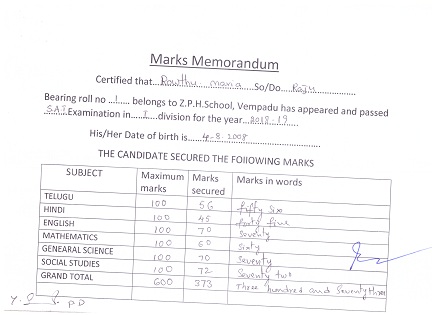 Marks Memorandum
Certified that Rowthu mania So/Do Raju
Bearing roll no 1 belongs to Z.P.H.School, Vempadu has appeared and passed
SAI Examination in I division for the year 2018-19
His/Her Date of birth is 4-8-2008
THE CANDIDATE SECURED THE FOllOWING MARKS
SUBJECT Maximum marks Marks secured Marks in words
TELUGU 100 56 fifty six
HINDI 100 45 forty five
ENGLISH 100 70 Seventy
MATHEMATICS 100 60 Sixty
GENEARAL SCIENCE 100 70 Seventy
SOCIAL STUDIES 100 72 Seventy two
GRAND TOTAL 600 373 Three hundred and Seventy three